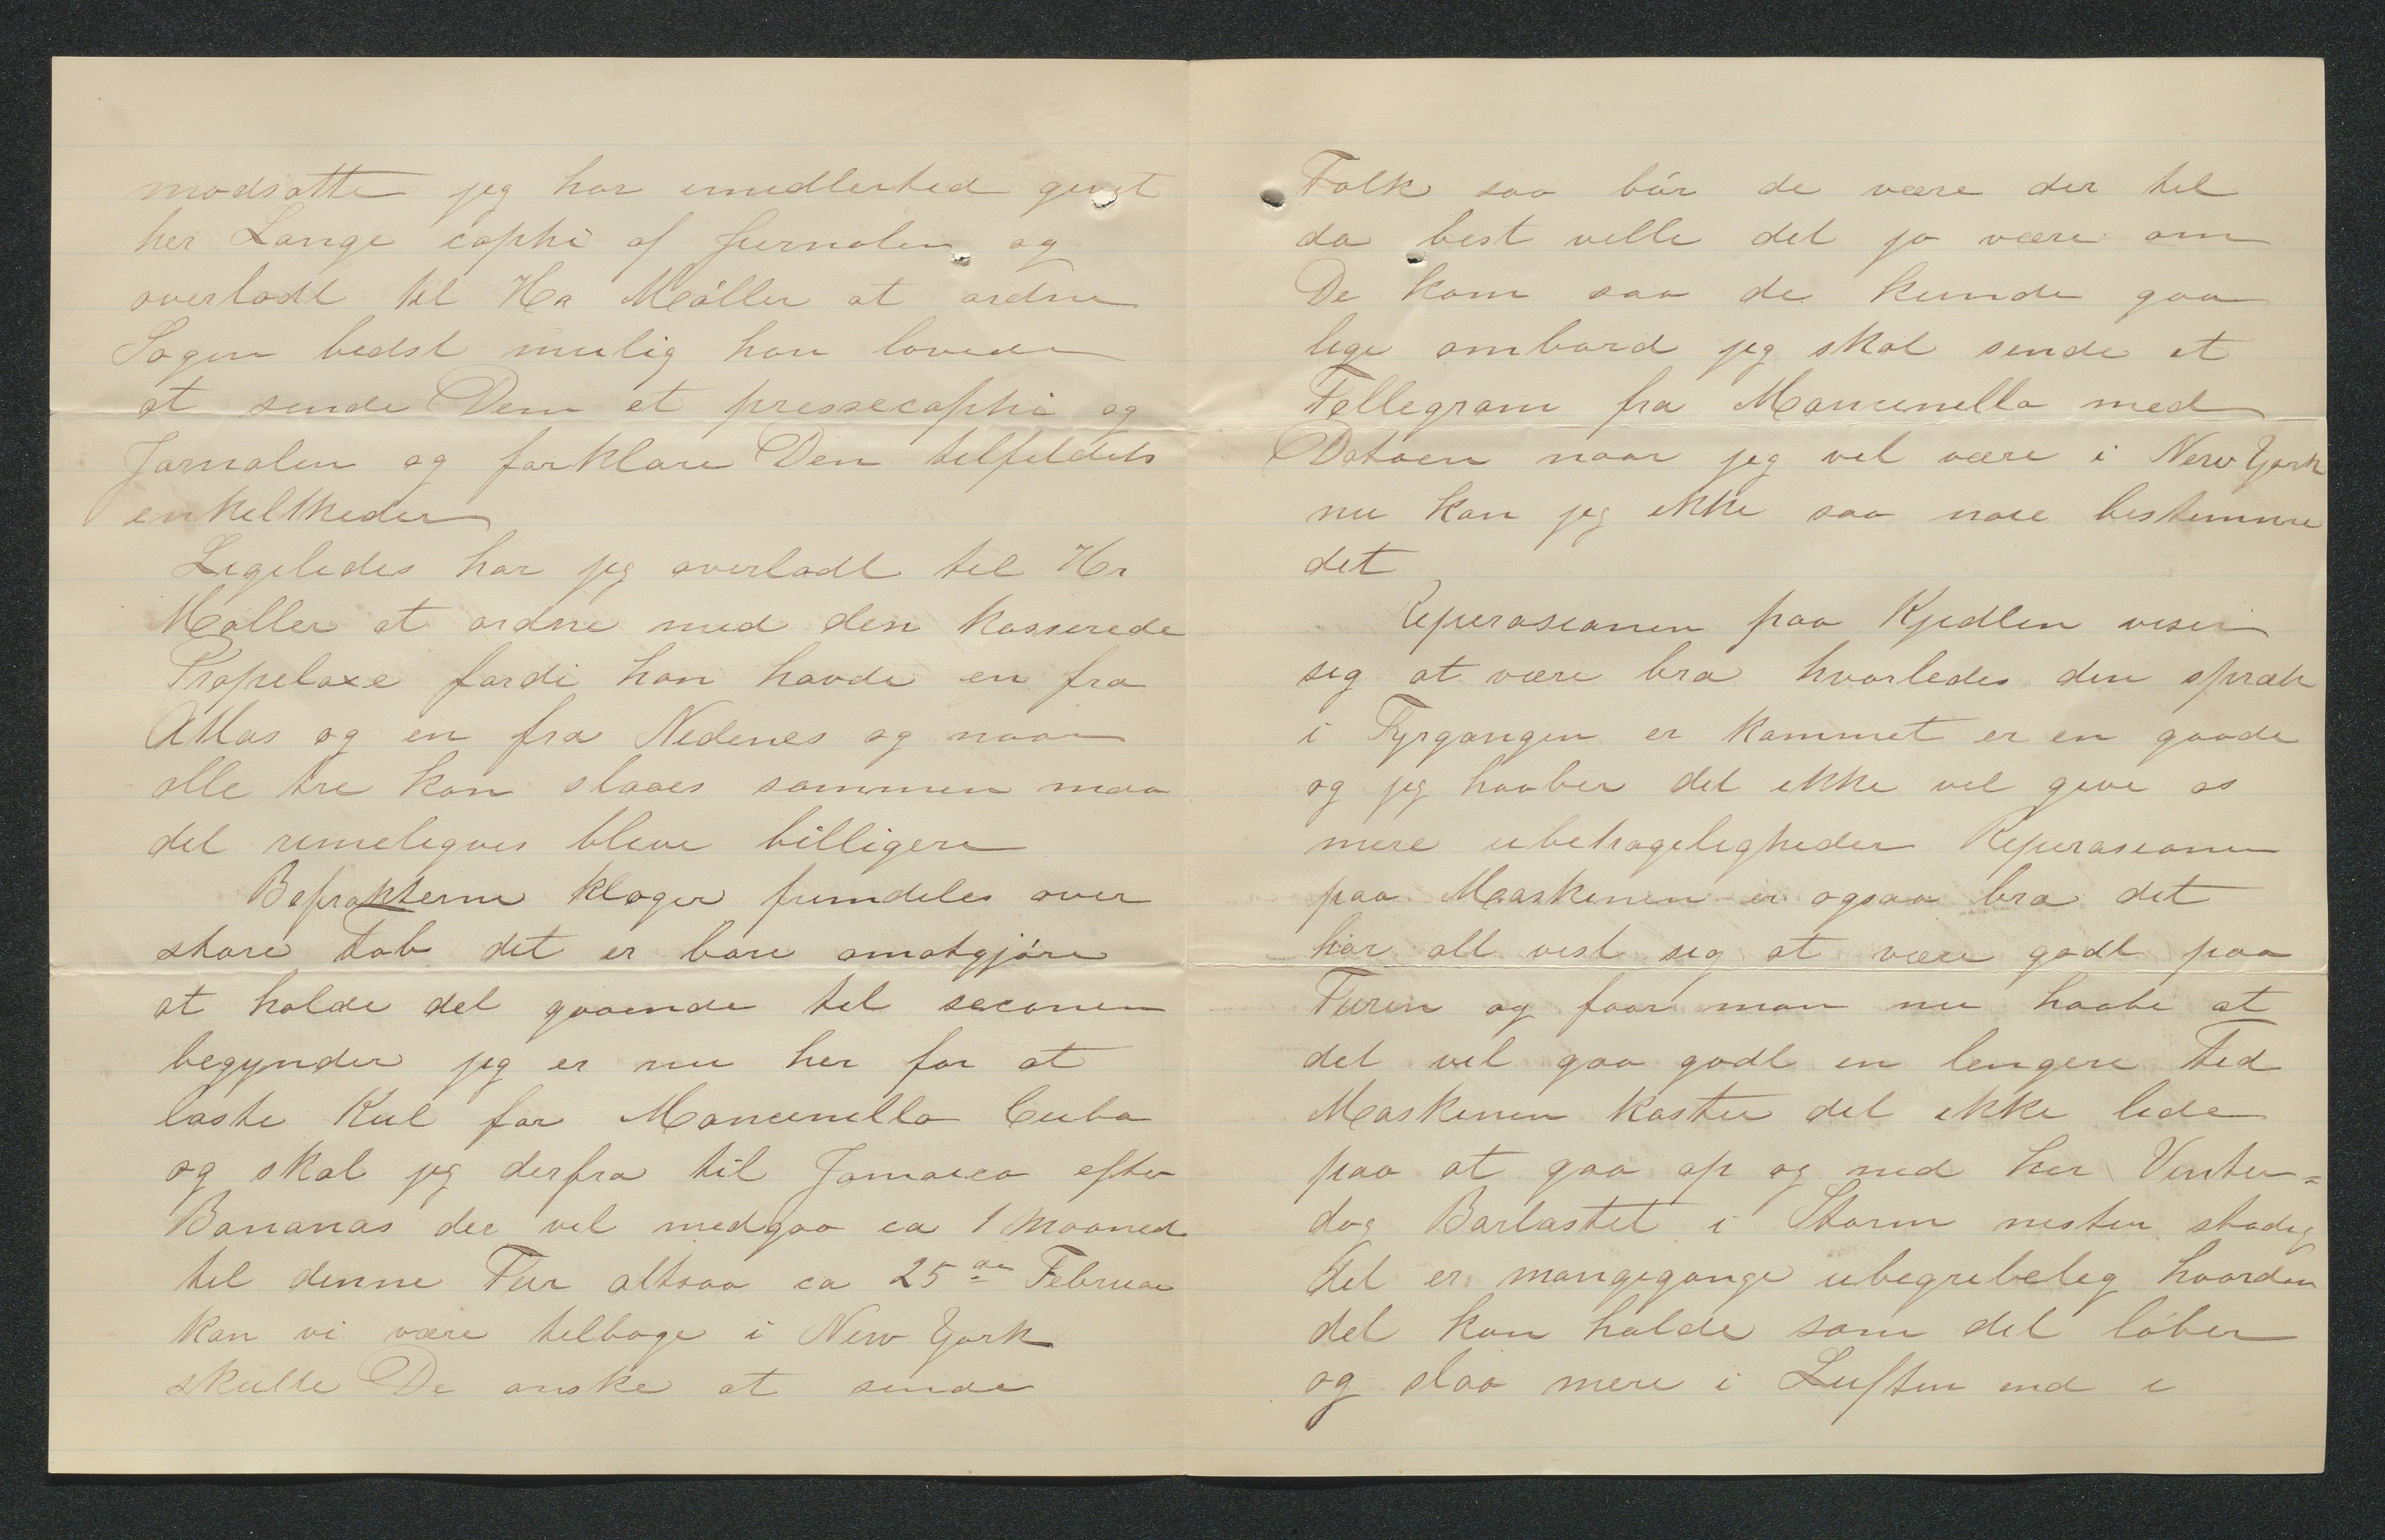 modsatte jeg har imidlertid givet
her Lange cophi af Jurnalen og
overladt til Hr Møller at ordne
Sagen bedst mulig han lovede
at sende Dem et pressecophi og
Jornalen og forklare Dem tilfeldets
enkeltheder
Ligeledes har jeg overladt til Hr
Møller at ordne med den kasserede
Propelaxe fordi han havde en fra
Atlas og en fra Nedenes og naar
alle tre kan slaaes sammen maa
det rimeligvis blive billigere
Befrakterne klager fremdeles over
store tab det er bare omatgjøre
at holde det gaaende til seconen
begynder jeg er nu her for at
laste Kul for Mancenello Cuba
og skal jeg derfra til Jamaica efter
Bananas der vil medgaa ca 1 Maaned
til denne Tur altsaa ca 25de Februar
kan vi være tilbage i New York
skulle De ønske at sende
Folk saa bør de være der til
da best ville det jo være om
De kom saa de kunde gaa
lige ombord jeg skal sende et
Tellegram fra Mancenello med
Datoen naar jeg vil være i New York
nu kan jeg ikke saa nøie bestemme
det
Reperasionen paa Kjedlen viser
sig at være bra hvorledes den spræk
i Fyrgangen er kommet er en gaade
og jeg haaber det ikke vil give os
mere ubehageligheder Reperasionen
paa Maskinen er ogsaa bra det
har alt vist sig at være godt paa
Turen og faar man nu haabe at
det vil gaa godt en lengere Tid
Maskinen koster det ikke lide
paa at gaa op og ned her Vinter=
dag Barlastet i Storm nesten stadig
det er mangegange ubegribelig hvordan
det kan holde som det løber
og slaa mere i Luften end i